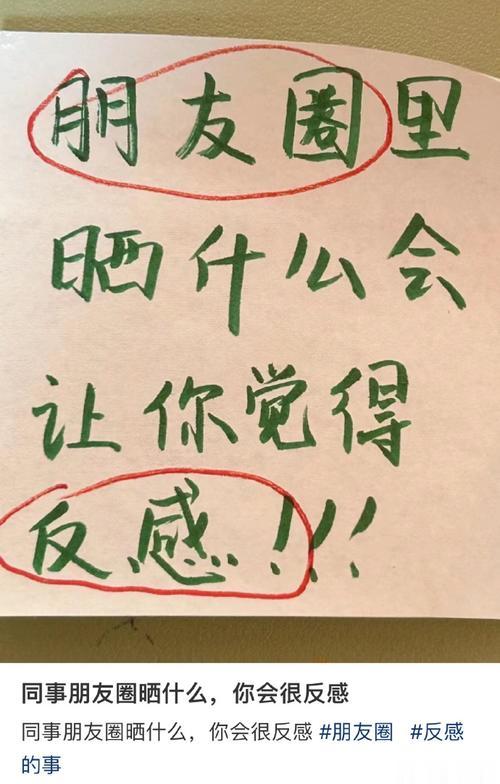 朋友圈里
晒什么会
让你觉得
反感!!!
同事朋友圈晒什么，你会很反感
同事朋友圈晒什么，你会很反感 #朋友圈 #反感
的事